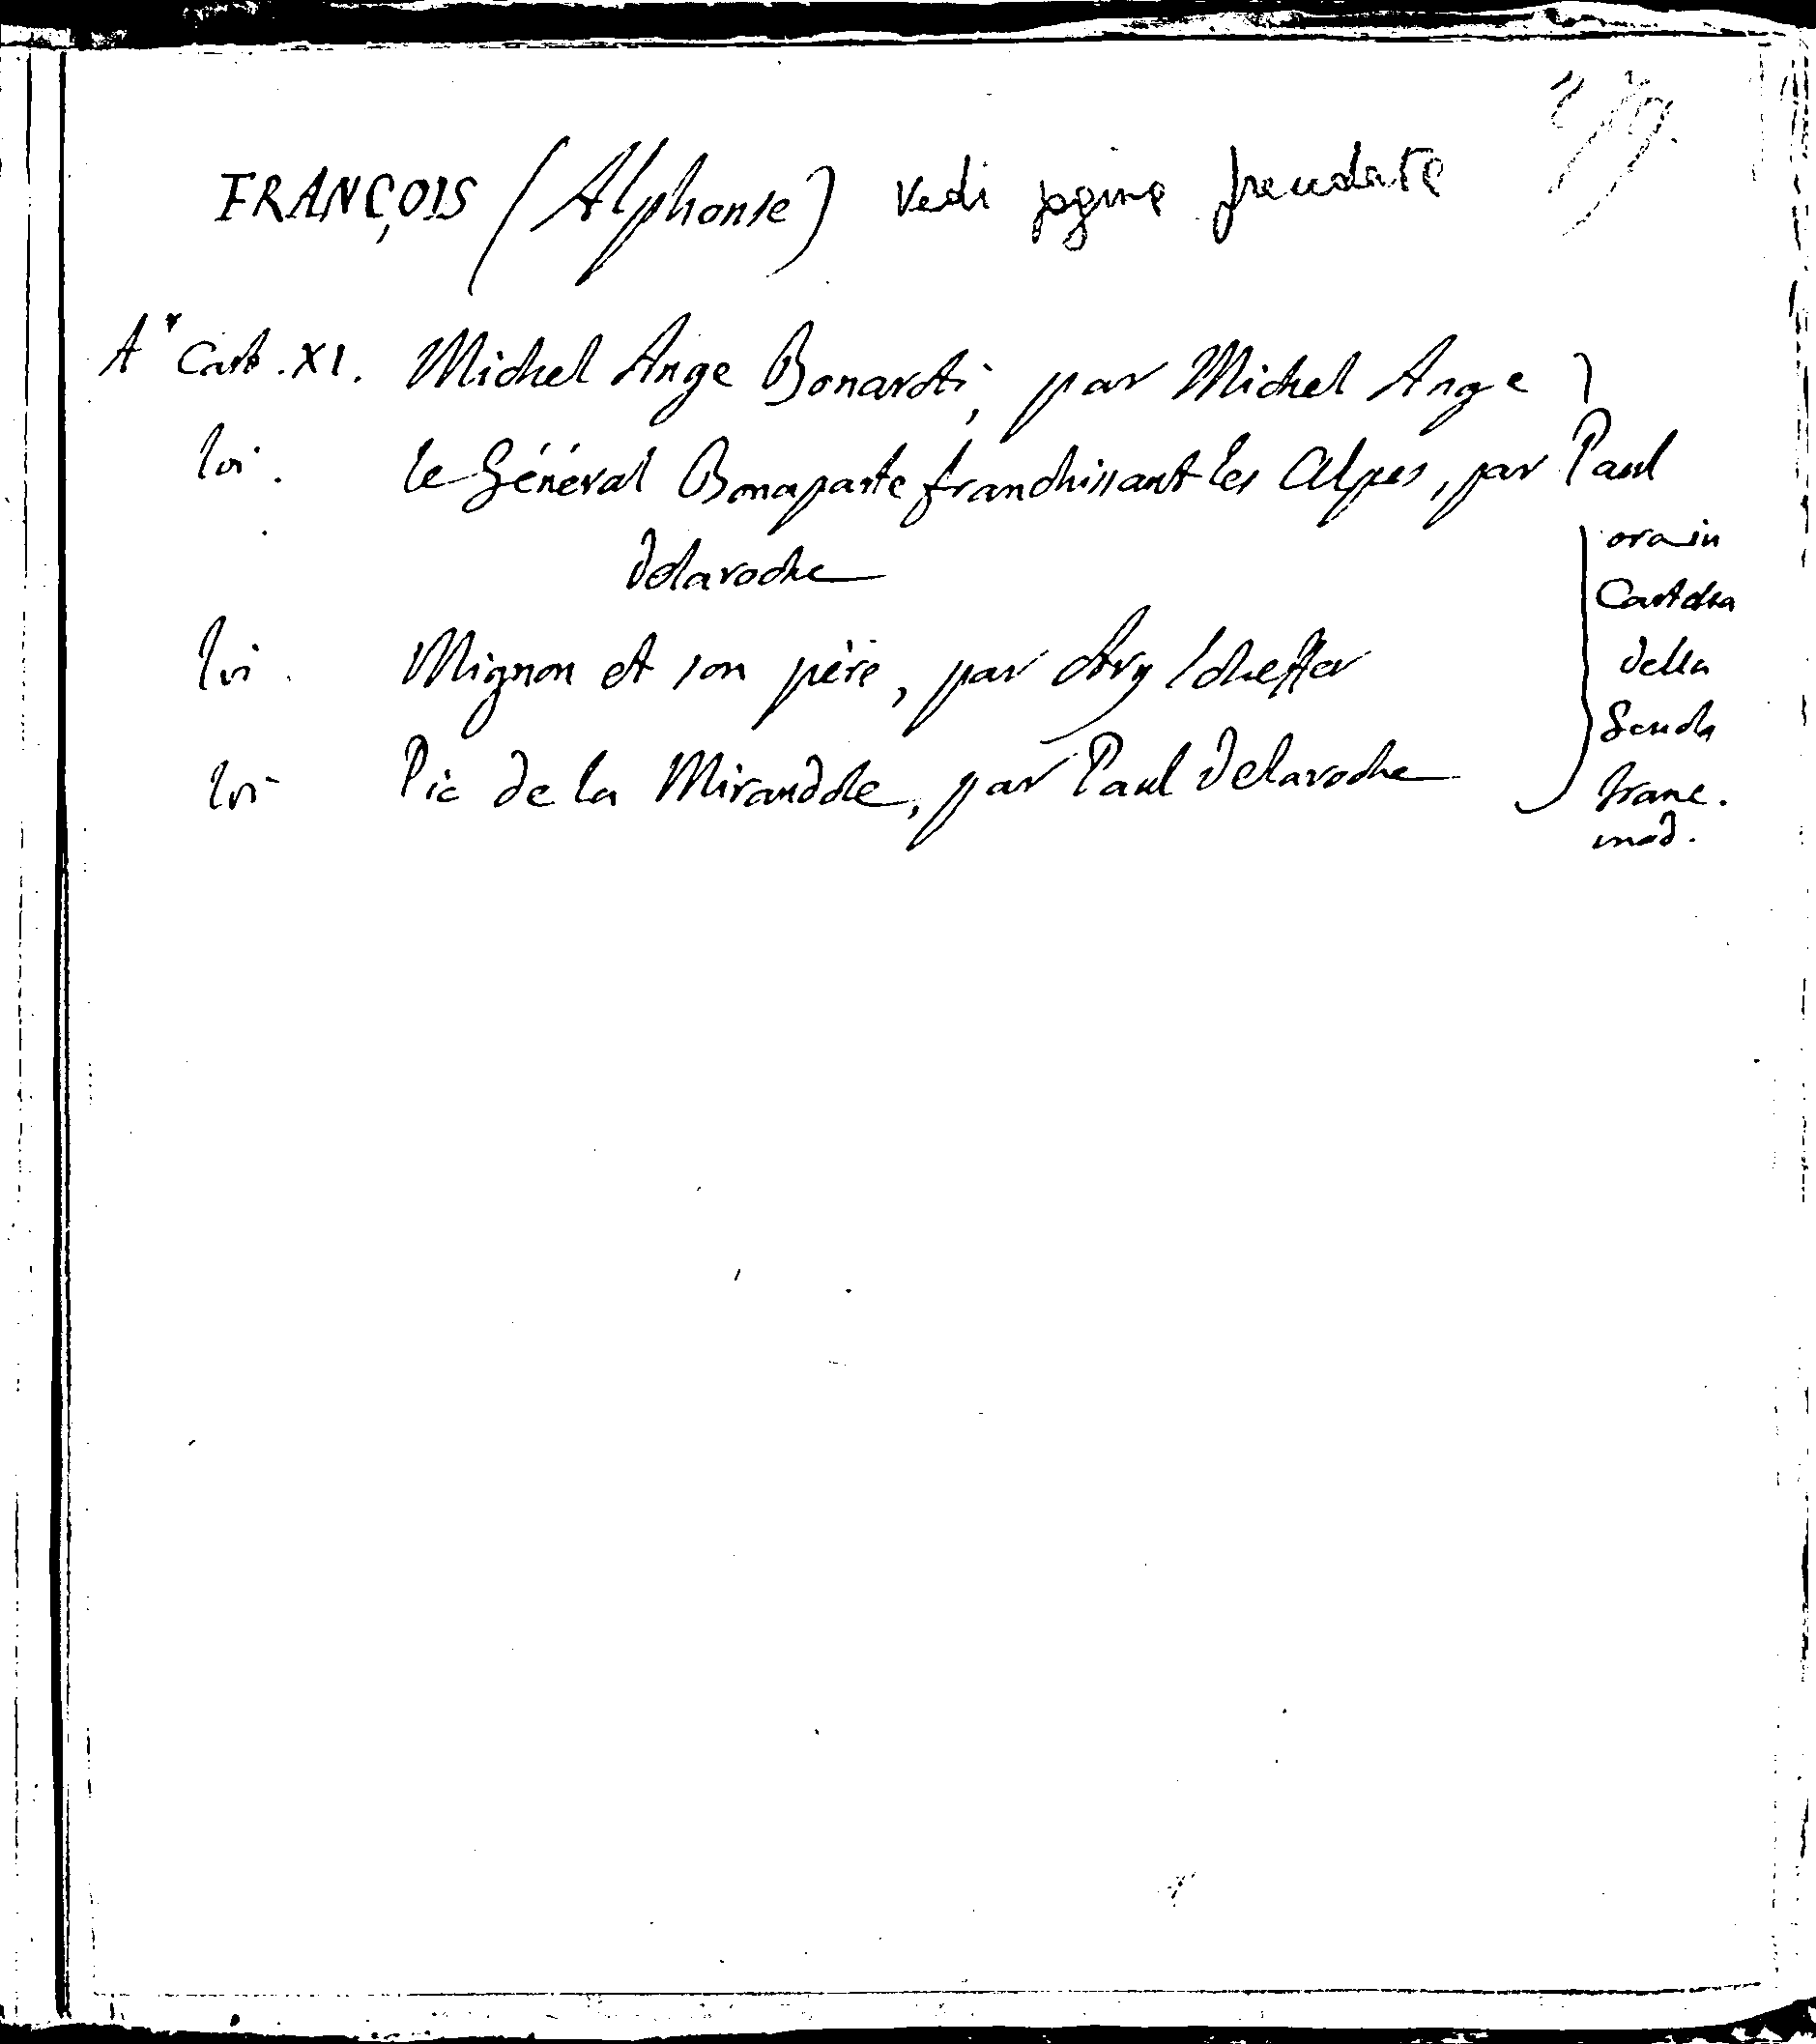 FRANÇOIS (Alphonse) vedi pagina precedente
A* Cart. XI. Michel Ange Bonaroti, par Michel Ange
Ivi. le Général Bonaparte franchissant les Alpes, par Paul
Delaroche
Ivi. Mignon et son père, par Ary Scheffer
Ivi Pic de la Mirandole, par Paul Delaroche
ora in
Cartella
della
Scuola
franc.
mod.